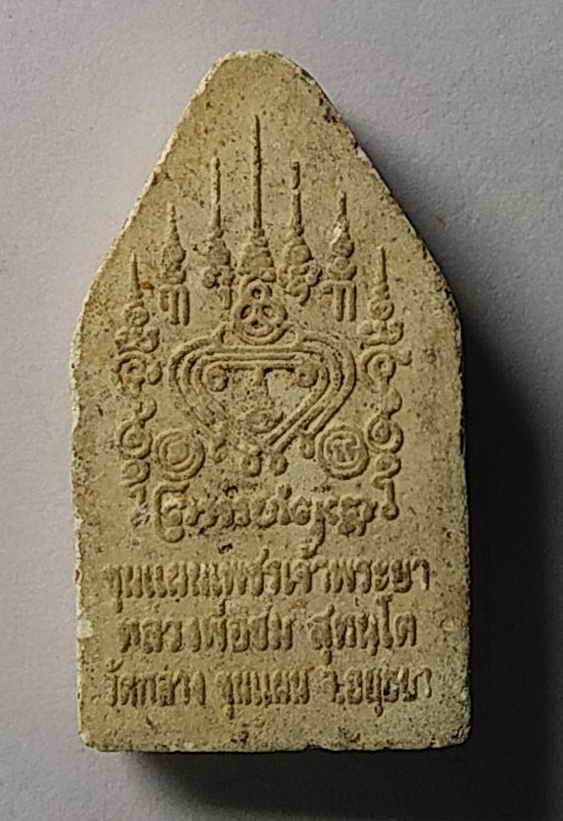 ขุนแผนเพชรเจ้าพระยา
หลวงพ่อชม สุทนฺโต
วัดกลาง ขุนแผน จ.อยุธยา